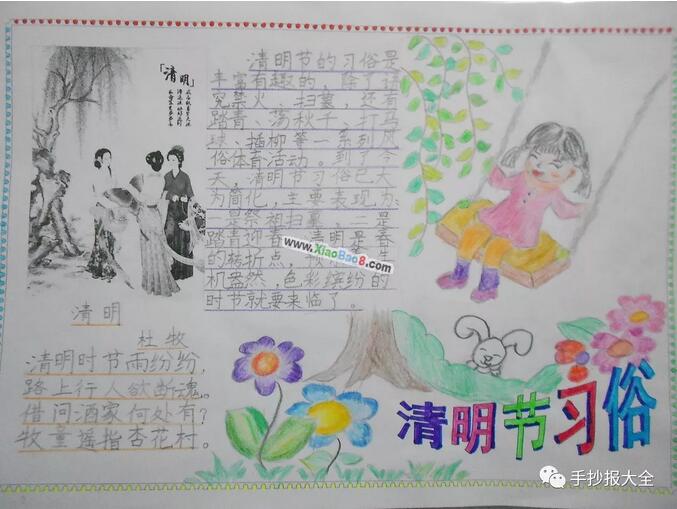 「清明」
清明节的习俗是
丰富有趣的，除了讲
究禁火、扫墓，还有
踏青、荡秋千、打马
球、插柳等一系列风
俗体育活动。到了今
天，清明节习俗已大
为简化，主要表现为：
一是祭祖扫墓，二是
踏青迎春。清明是春
的转折点，
机盎然，色彩缤纷的
时节就要来临了。
www.XiaoBao8.com
清明
杜牧
清明时节雨纷纷，
路上行人欲断魂。
借问酒家何处有？
牧童遥指杏花村。
清明节习俗
手抄报大全